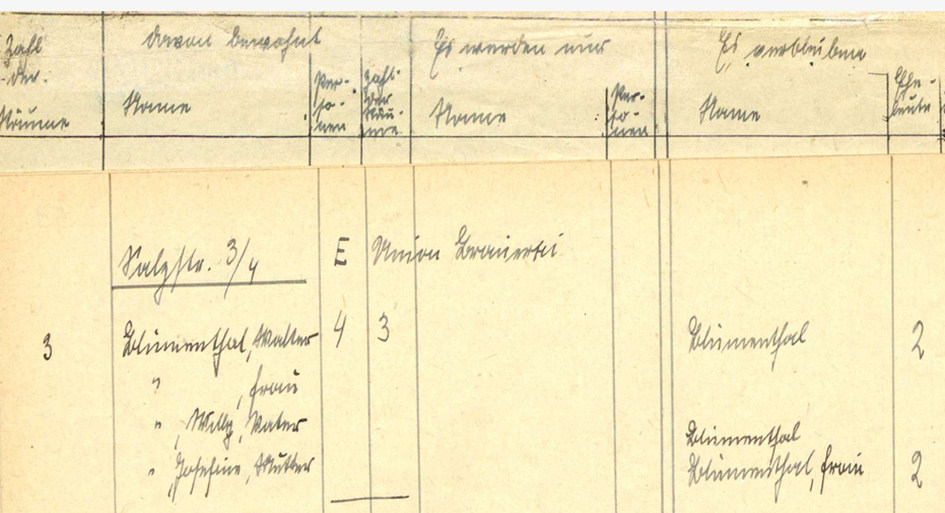 Zahl der Räume
davon bewohnt
Name
Per-
so-
nen
Zahl
der
Räu-
me
Es werden nur
Name
Per-
so-
nen
Es verbleiben
Name
Ehe-
leute
Salzstr. 3/4 E Union Brauerei
3 Blumenthal, Walter 4 3 Blumenthal 2
" , Frau
" , Willy, Vater
Blumenthal
" , Josefine, Mutter Blumenthal, Frau 2